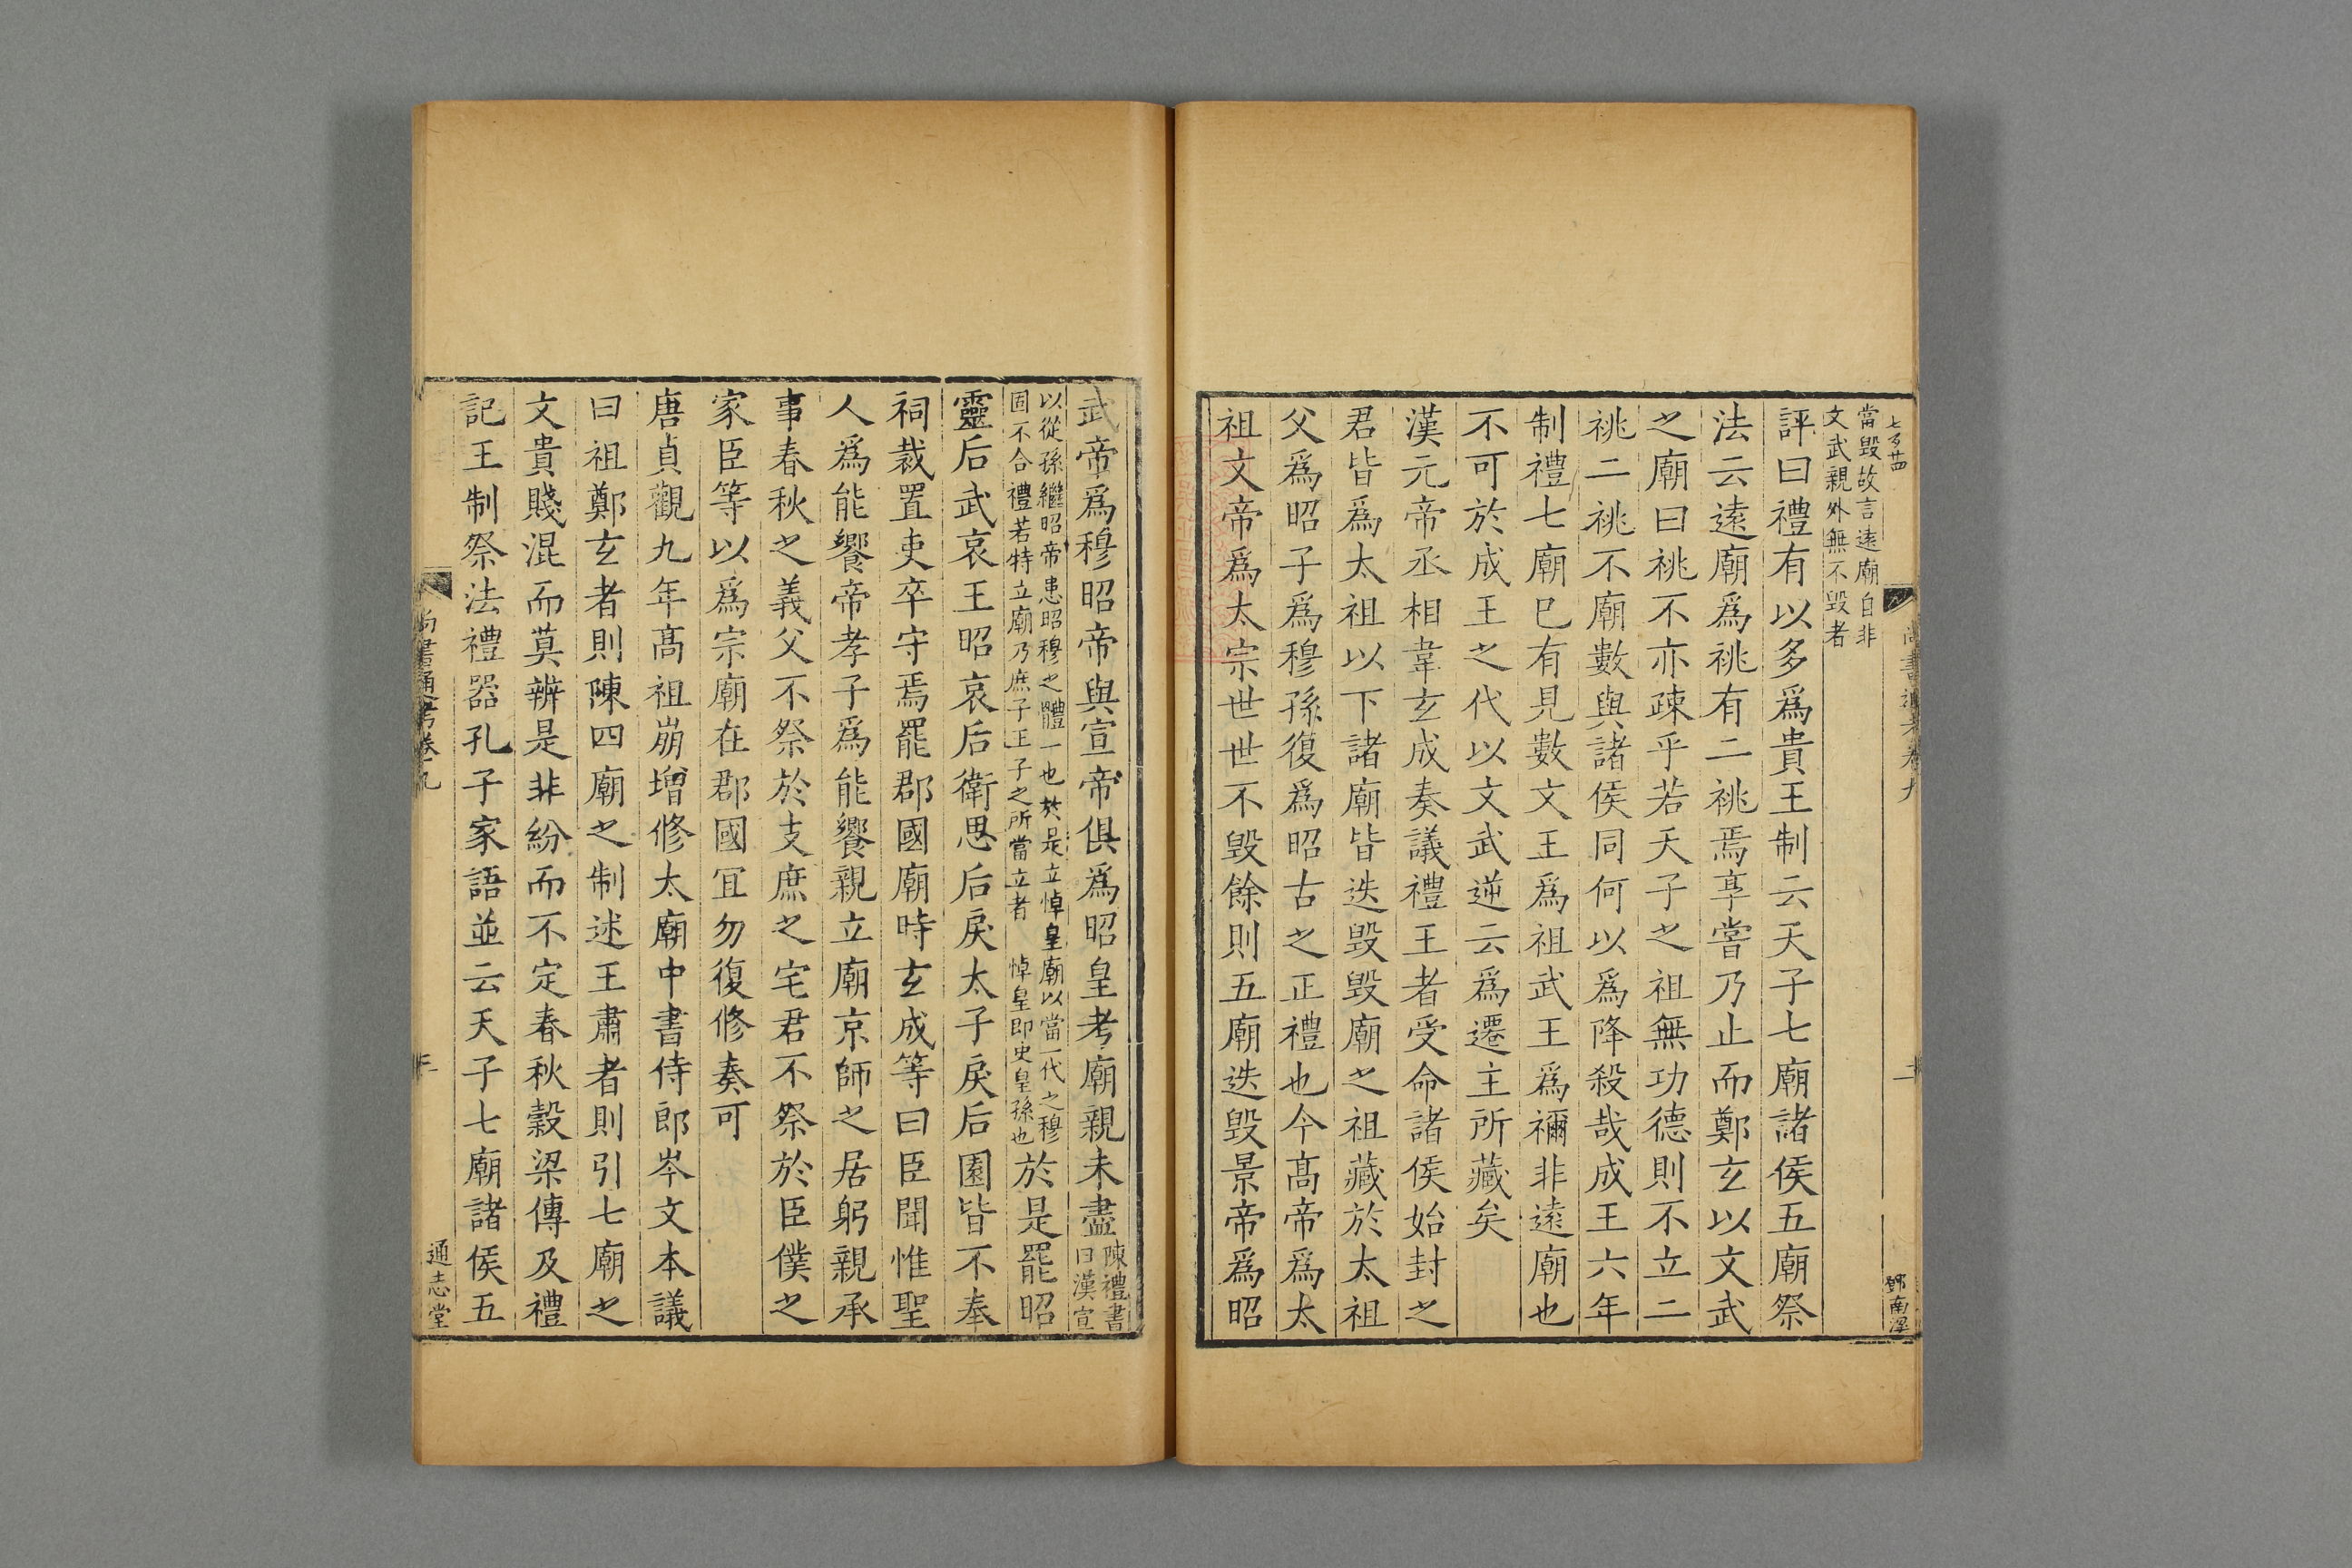 當毀故言遠廟自非
文武親外無不毀者
評曰禮有以多爲貴王制云天子七廟諸侯五廟祭
法云遠廟爲祧有二祧焉享嘗乃止而鄭玄以文武
之廟曰祧不亦疎乎若天子之祖無功德則不立二
祧二祧不廟數與諸侯同何以爲降殺哉成王六年
制禮七廟已有見數文王爲祖武王爲禰非遠廟也
不可於成王之代以文武逆云爲遷主所藏矣
漢元帝丞相韋玄成奏議禮王者受命諸侯始封之
君皆爲太祖以下諸廟皆迭毀毀廟之祖藏於太祖
父爲昭子爲穆孫復爲昭古之正禮也今髙帝爲太
祖文帝爲太宗世世不毀餘則五廟迭毀景帝爲昭
鄧南淫
武帝爲穆昭帝與宣帝俱爲昭皇考廟親未盡陳禮書
曰漢宣
以從孫繼昭帝患昭穆之體一也於是立悼皇廟以當一代之穆
固不合禮若特立廟乃庶子王子之所當立者 悼皇即史皇孫也於是罷昭
靈后武哀王昭哀后衛思后戾太子戾后園皆不奉
祠裁置吏卒守焉罷郡國廟時玄成等曰臣聞惟聖
人爲能饗帝孝子爲能饗親立廟京師之居躬親承
事春秋之義父不祭於支庶之宅君不祭於臣僕之
家臣等以爲宗廟在郡國冝勿復修奏可
唐貞觀九年髙祖崩增修太廟中書侍郎岑文本議
曰祖鄭玄者則陳四廟之制述王肅者則引七廟之
文貴賤混而莫辨是非紛而不定春秋穀梁傳及禮
記王制祭法禮器孔子家語並云天子七廟諸侯五
通志堂